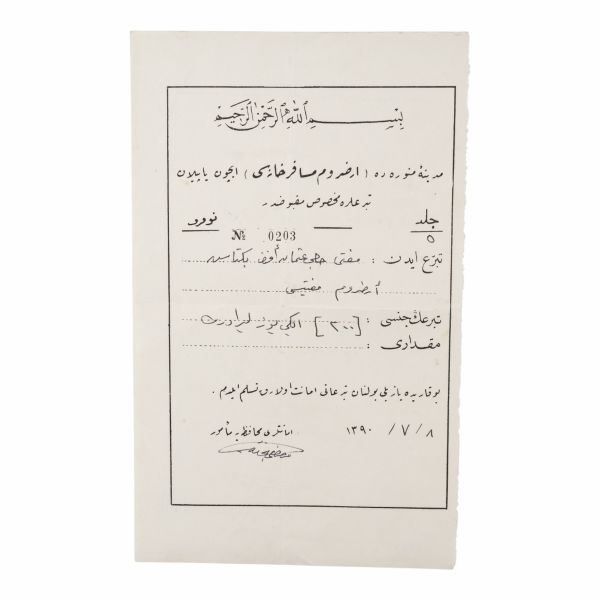 بسم الله الرحمن الرحيم
مدينۀ منوره ده (ارضروم مسافرخانه سى) ايچون ياپيلان
تبرعلره مخصوص مقبوضدر
جلد نومرو
٥ № 0203
تبرّع ايدن : مفتى حاجى عثمان أفندى بكتاش
أرضروم مفتيسى
تبرعڭ جنسى : [٢٠٠] ايكى يوز ليرا
مقدارى :
يوقاريده يازيلى بولنان تبرعاتى امانت اولارق تسلم ايلدم .
٨ / ٧ / ١٣٩٠
امانتلرى محافظه يه مأمور